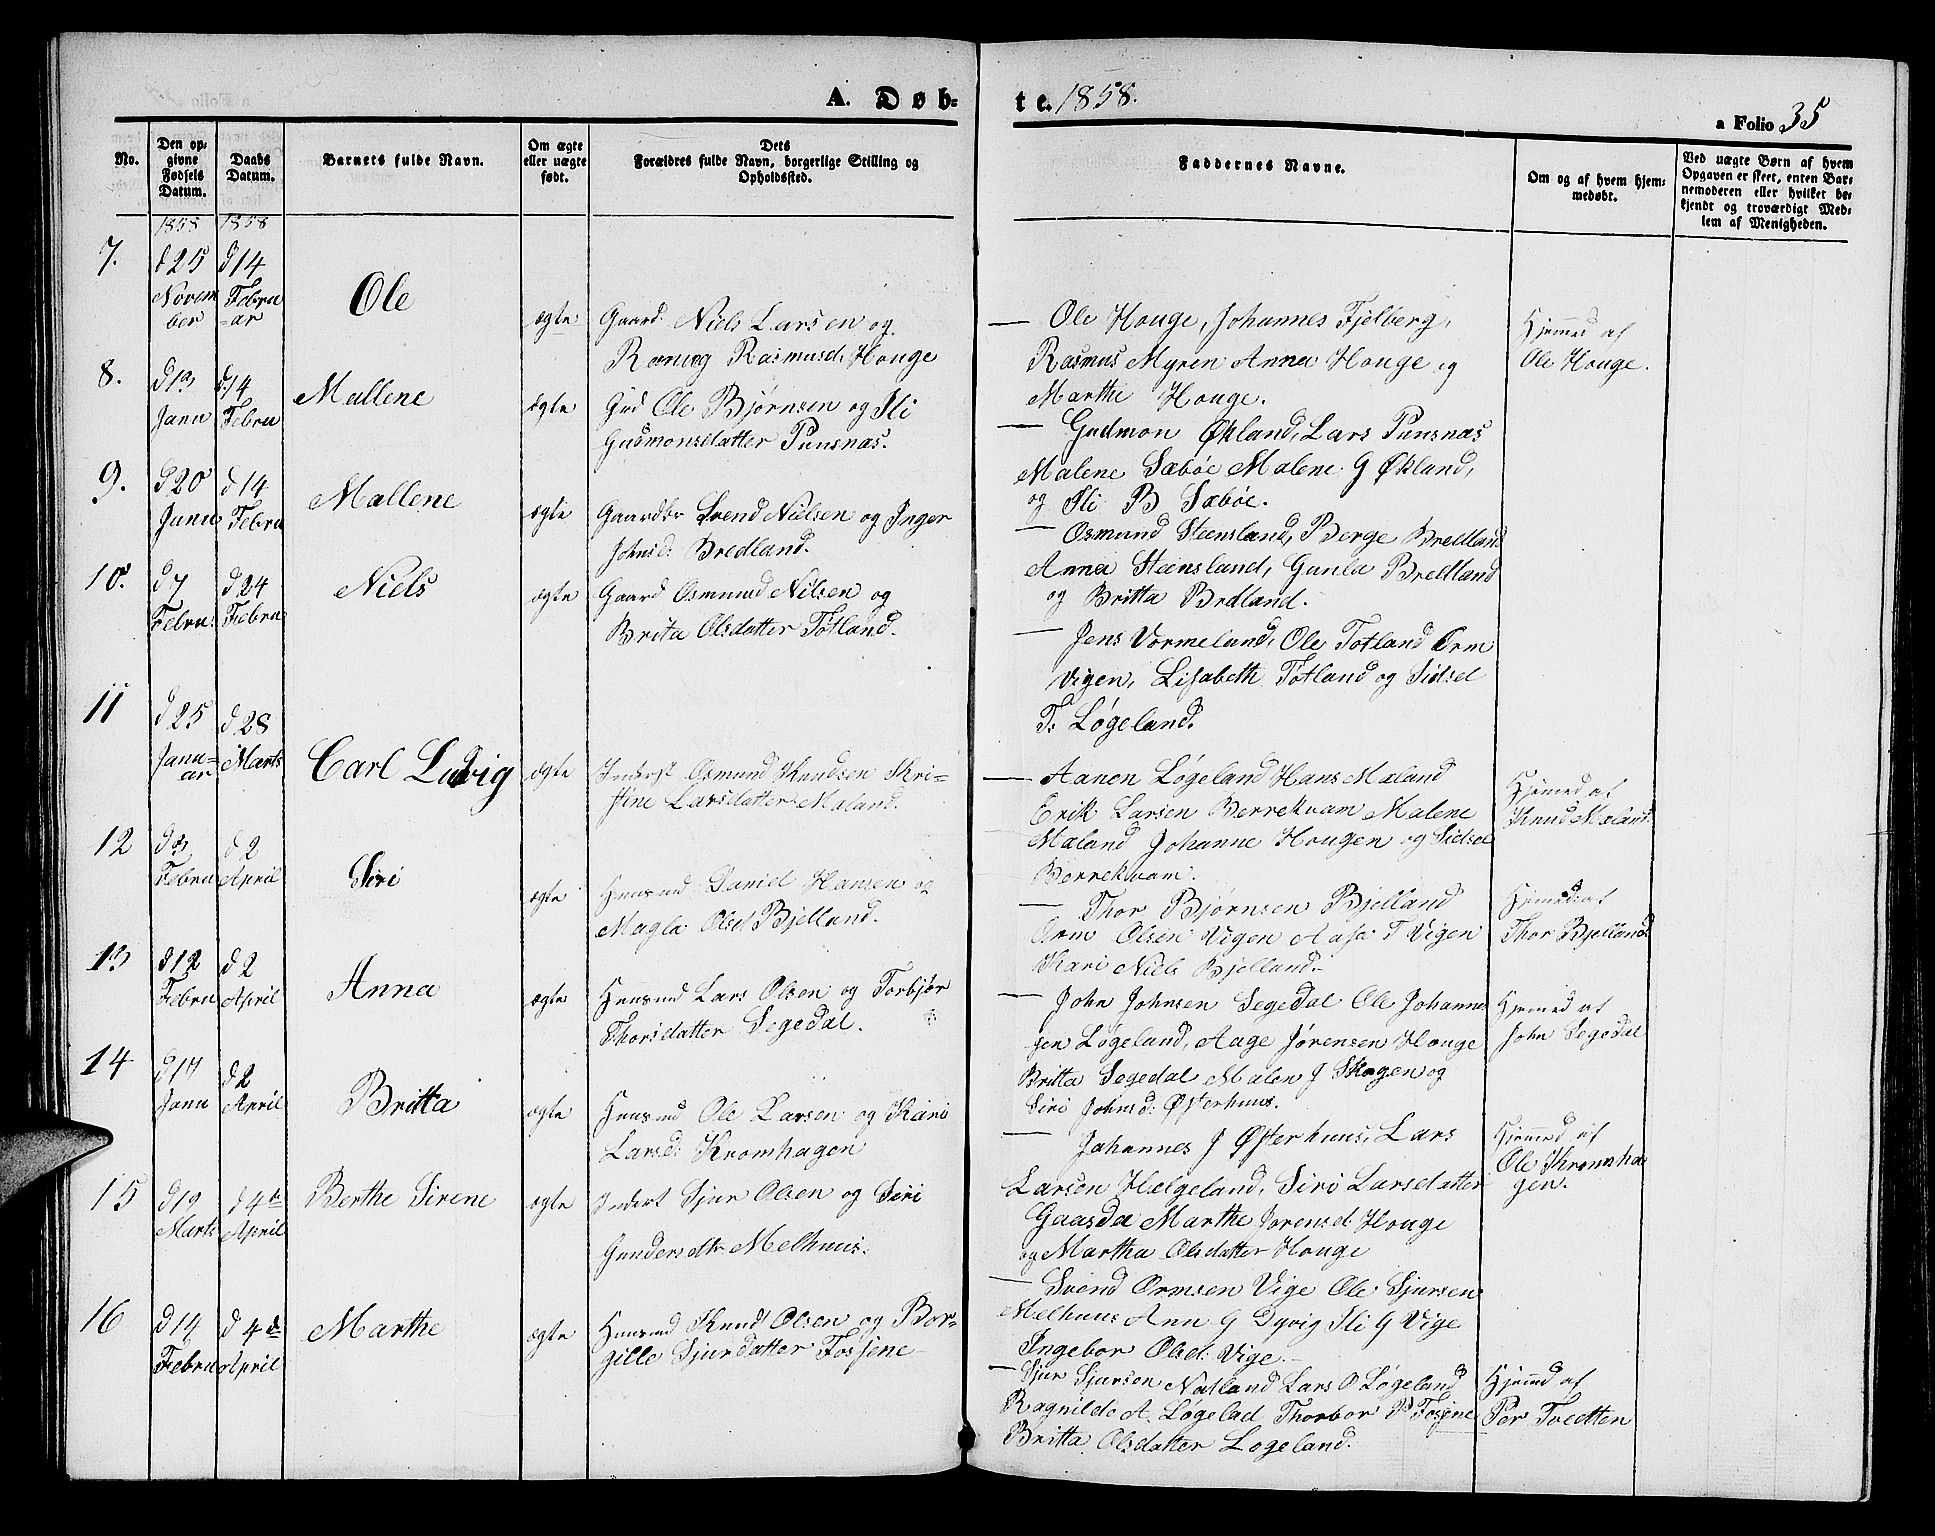 A. Døb=
te. 1858.
a Folio 35
No.
Den op=
givne
Fødsels
Datum.
Daabs
Datum.
Barnets fulde Navn.
Om ægte
eller uægte
født.
Dets
Forældres fulde Navn, borgerlige Stilling og
Opholdssted.
Faddernes Navne.
Om og af hvem hjem=
medøbt.
Ved uægte Børn af hvem
Opgaven er skeet, enten Bar=
nemoderen eller hvilket be=
kjendt og troværdigt Med=
lem af Menigheden.
1858 1858
7.
d 25
Novem
ber
d 14
Febru
=ar
Ole
ægte
Gaard. Niels Larsen og
Rasmusd. Houge
— Ole Houge, Johannes Fjelberg,
Rasmus Myren Anna Houge og
Marthe Houge.
Hjemmed af
Ole Houge.
8.
Janu
d. 14
Febru
Mallene
ægte
Ole Bjørnsen og Sli
Gudmonsdatter Punsnæs.
— Gudmon Økland, Lars Punsnæs
Malene Sæbøe Malene G Økland,
og Sli B Sæbøe.
9.
d 20
Janu
d 14
Febru
Mallene
ægte
Gaardbr Svend Nielsen og Inger
Johnsd: Bredland.
— Osmund Steensland, Berge Bredland
Anna Steensland, Gunla Bredland
og Britta Bredland.
10.
d 7
Febru.
d 24
Febru
Niels
ægte
Gaard Osmund Nilsen og
Brita Olsdatter Totland.
— Jens Vormeland, Ole Totland Orm
Vigen, Lisabeth Totland og Sidsel
T. Løgeland.
11
d 25
Janu=
ar
d 28
Marts
Carl Ludvig
ægte
Inderst Osmund Knudsen Kri=
stine Larsdatter Maland.
— Aanen Løgeland Hans Mæland
Erik Larsen Berrekvam Malene
Mæland Johanne Hougen og Sidsel
Berrekvam.
Hjemmed af
Knud Mæland.
12
Febru
d 2
April
Siri
ægte
Huusmd Daniel Hansen og
Magla Olsd Bjelland.
— Thor Bjørnsen Bjelland
Orm Olsen Vigen Aasa T Vigen
Kari Niels Bjelland.
Hjemmed: af
Thor Bjelland
13
d 12
Febru
d 2
April
Anna
ægte
Huusmd Lars Olsen og Torbjør
Thorsdatter Segedal.
— John Johnsen Segedal Ole Johanne
sen Løgeland, Aage Jørensen Houge
Britta Segedal Malen J Skogen og
Siri Johnsd: Østerhuus.
Hjemmed af
John Segedal
14
Janu
d 2
April
Britta
ægte
Huusmd Ole Larsen og Kari
Larsd: Kromhagen
— Johannes J Østerhuus, Lars
Larsen Hælgeland, Siri Larsdatter
Marthe Jorensd. Houge
og Martha Olsdatter Houge
Hjemmed af
Ole Kromha
gen.
15
d 19
Marts
d 4de
April
Berthe Sirene
ægte
Inderst Sjur Olsen og Siri
Gundersdtr Melhuus.
— Svend Ormsen Vige Ole Sjursen
Melhuus Ann G Dyvig Sli G Vige
Ingebor Olsd. Vige.—
16
d 14
Febru
d 4de
April
Marthe
ægte
Huusmd Knud Olsen og Bor=
gille Sjurdatter Fosjene—
— Sjur Sjursen Natland Lars O Løgeland
Ragnilde A. Løgelad Thorbor P Fosjene
Britta Olsdatter Logeland.
Hjemmed af
Per Tvedten